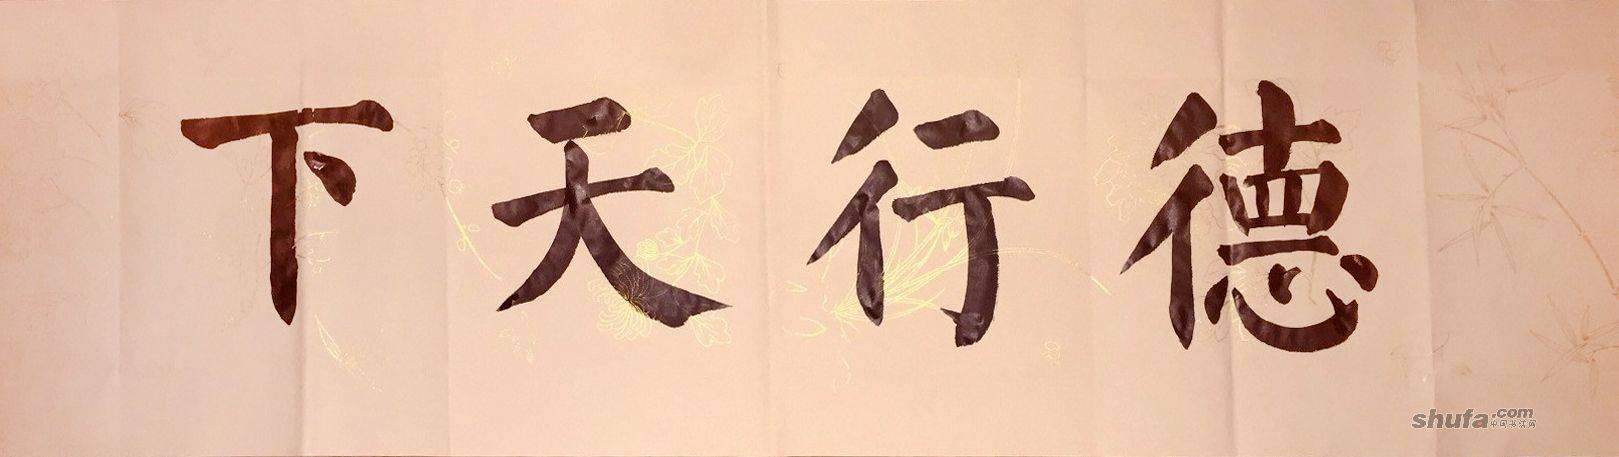 德行天下
shufa.com
中国书法网